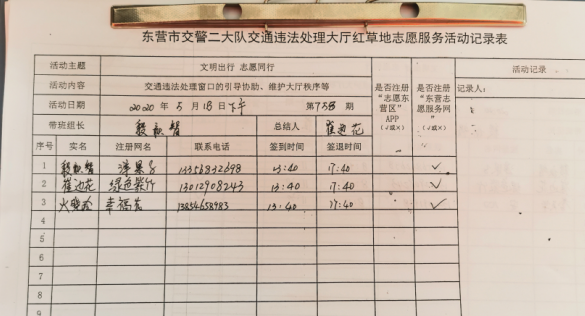 东营市交警二大队交通违法处理大厅红草地志愿服务活动记录表
活动主题 文明出行 志愿同行
活动内容 交通违法处理窗口的引导协助、维护大厅秩序等
活动日期 2020 年 5 月 18日下午 第758期
带班组长 总结人 崔边花
是否注册“志愿东营区”APP（√或×）
是否注册“东营志愿服务网”（√或×）
活动记录
记录人：
序号 实名 注册网名 联系电话 签到时间 签退时间
1 13356832698 13:40 17:40 √
2 崔边花 绿色 13012908243 13:40 17:40 √
3 幸福 13854658983 13:40 17:40 √
4
5
6
7
8
9